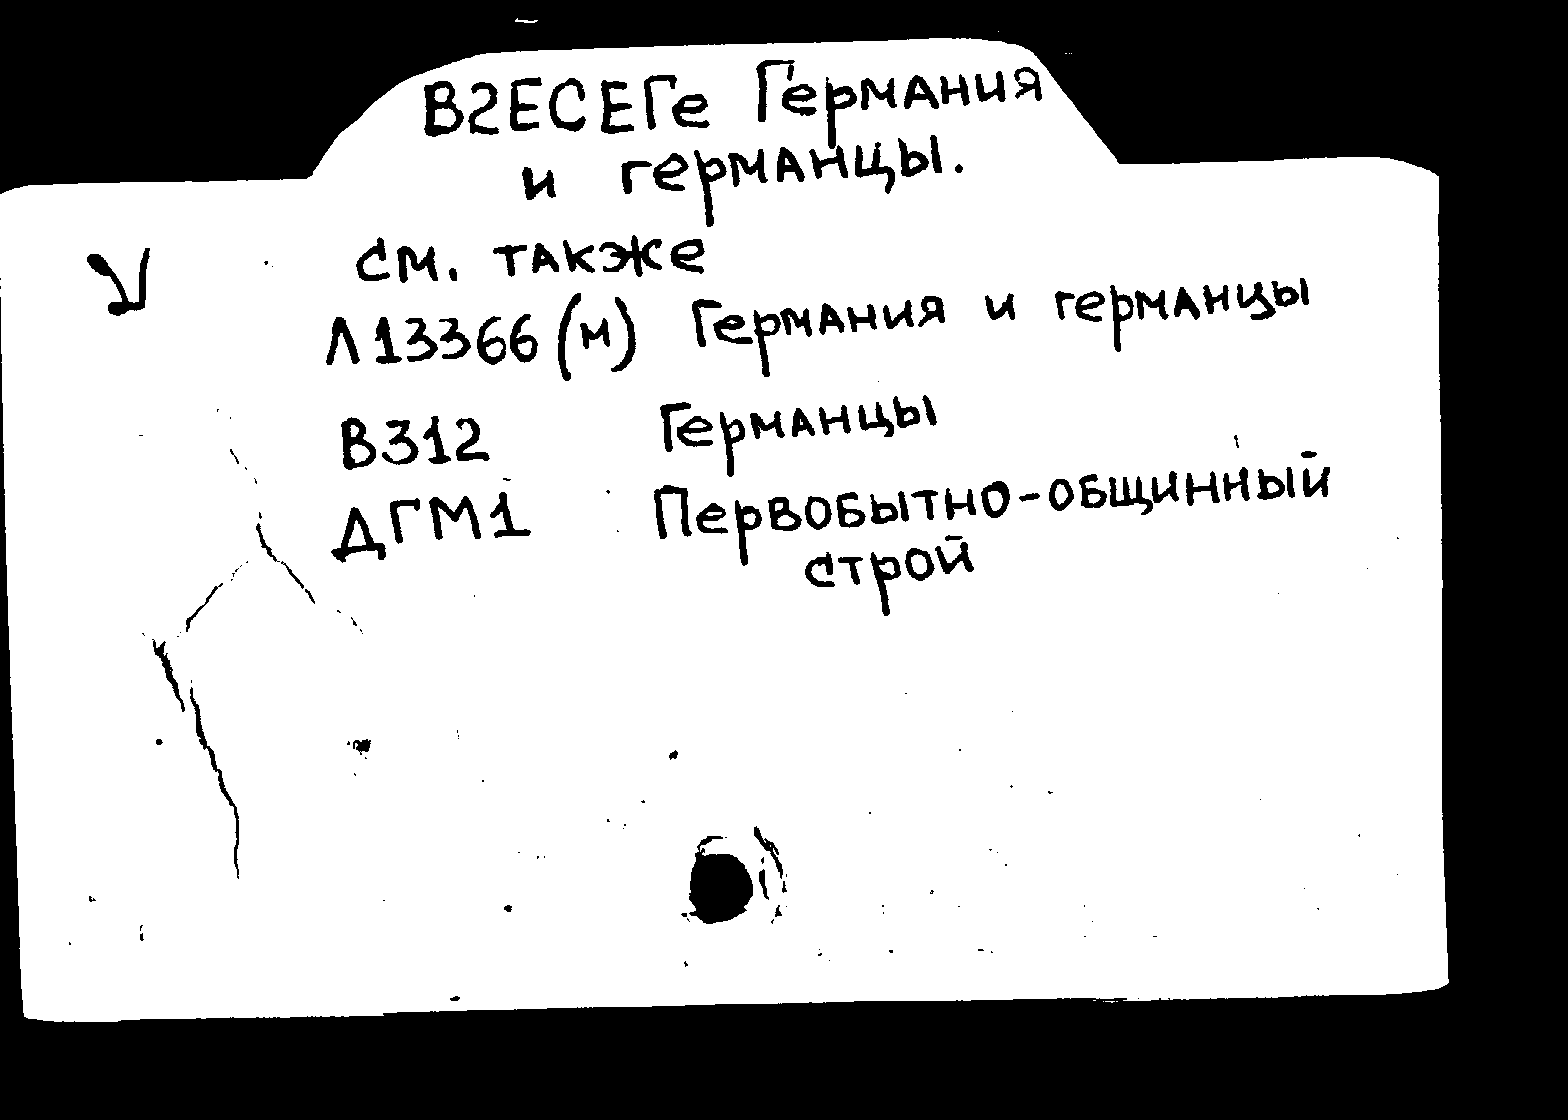 В2ЕСЕГе Германия
и германцы.
см. также
Л13366(м) Германия и германцы
В312 Германцы
ДГМ1 Первобытно-общинный
строй